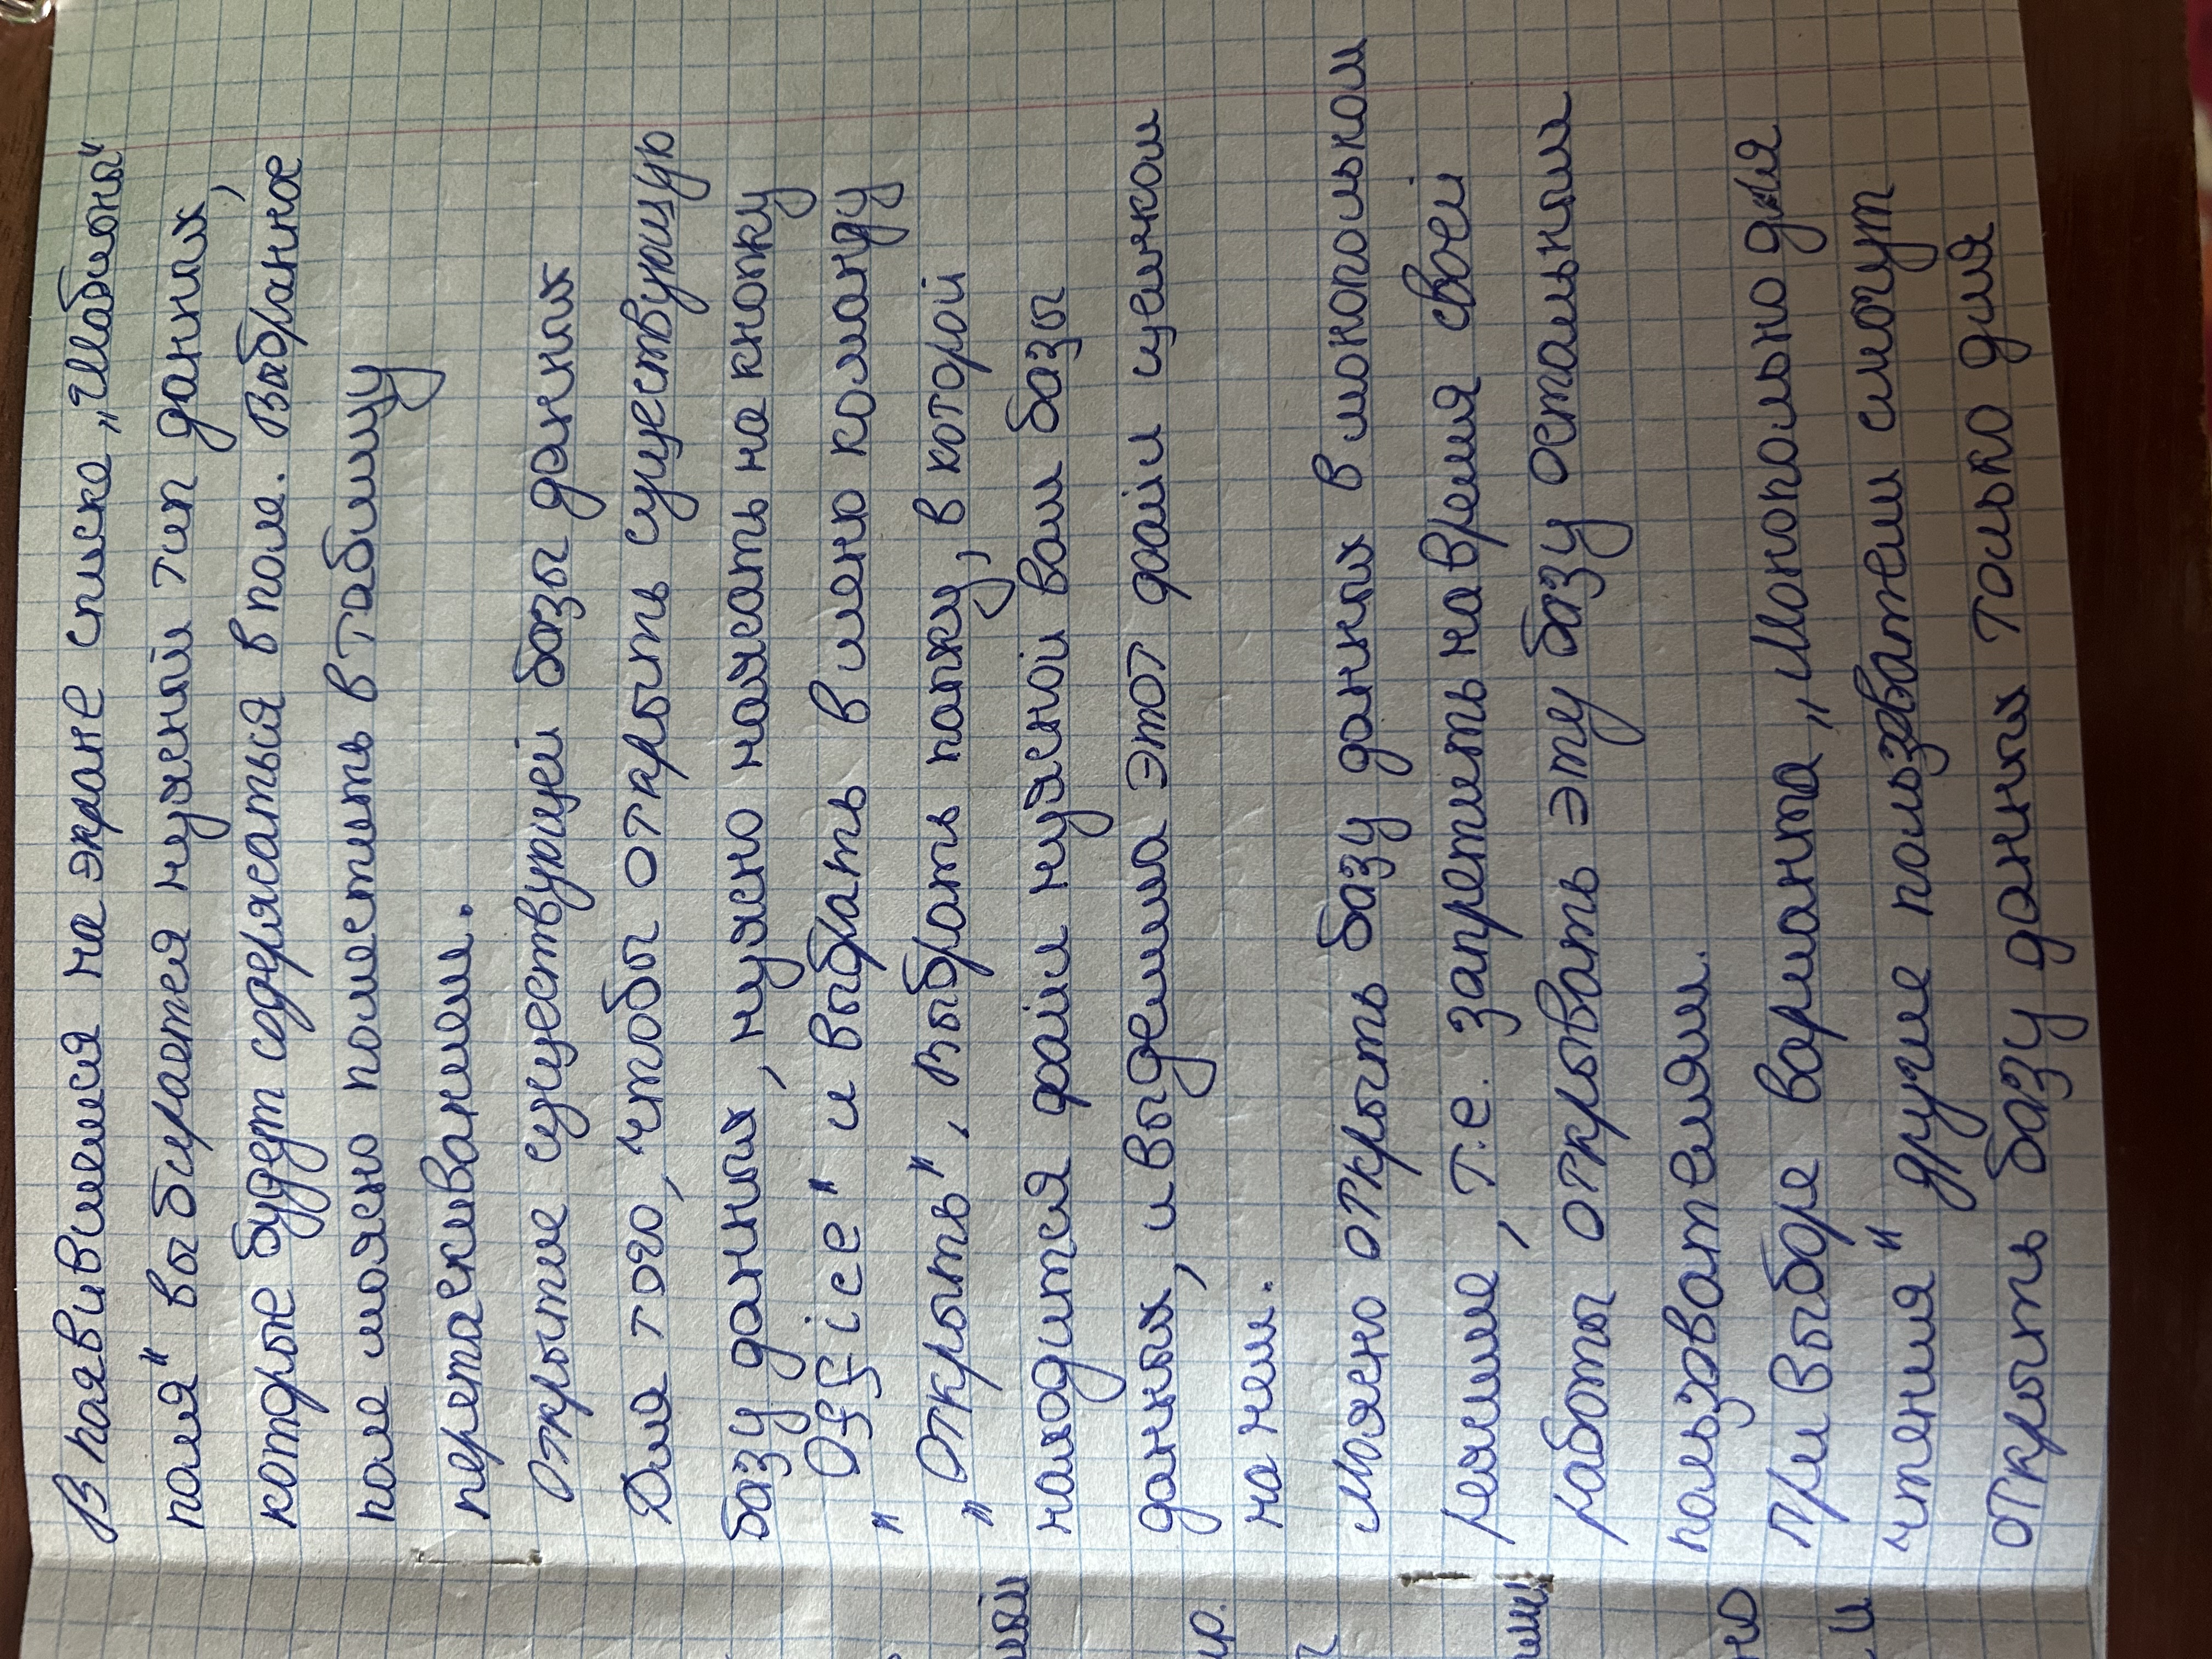 В появившемся на экране списке „Шаблоны
поля" выбирается нужный тип данных,
которые будет содержаться в поле. Выбранное
поле можно поместить в таблицу
перетаскиванием.
Открытие существующей базы данных
Для того, чтобы открыть существующую
базу данных, нужно нажать на кнопку
„Office" и выбрать в меню команду
„Открыть", Выбрать папку, в которой
находится файл нужной вам базы
данных, и выделила этот файл щелчком
на нем.
Можно открыть базу данных в монопольном
режиме, т.е. запретить на время своей
работы открывать эту базу остальным
пользователям.
При выборе варианта „Монопольно для
чтения" другие пользватели смогут
открыть базу данных только для
ный
ир.
но
и